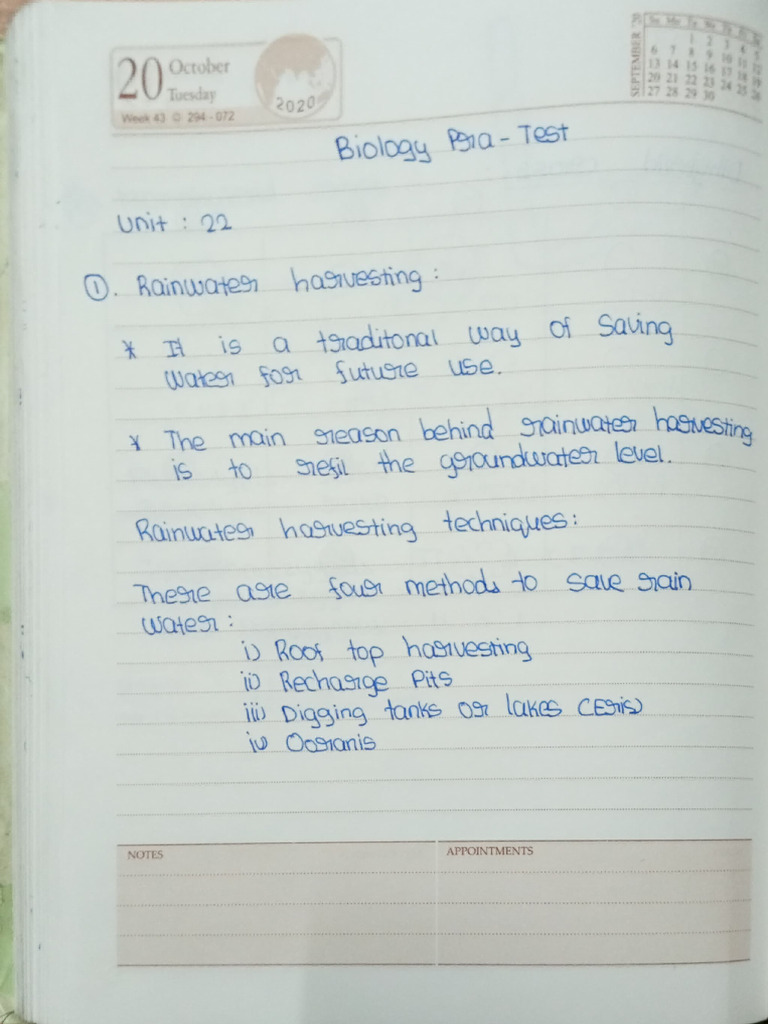 20 October
Tuesday
2020
Week 43 © 294 - 072
SEPTEMBER '20
Su Mo Tu We Th Fr Sa
1 2 3 4 5
6 7 8 9 10 11 12
13 14 15 16 17 18 19
20 21 22 23 24 25 26
27 28 29 30
Biology Pra - Test
Unit : 22
①. Rainwater harvesting :
* It is a traditonal way of saving
water for future use.
* The main reason behind rainwater harvesting
is to refil the groundwater level.
Rainwater harvesting techniques:
There are four methods to save rain
water :
i) Roof top harvesting
ii) Recharge Pits
iii) Digging tanks or lakes (Eris)
iv) Ooranis
NOTES
APPOINTMENTS